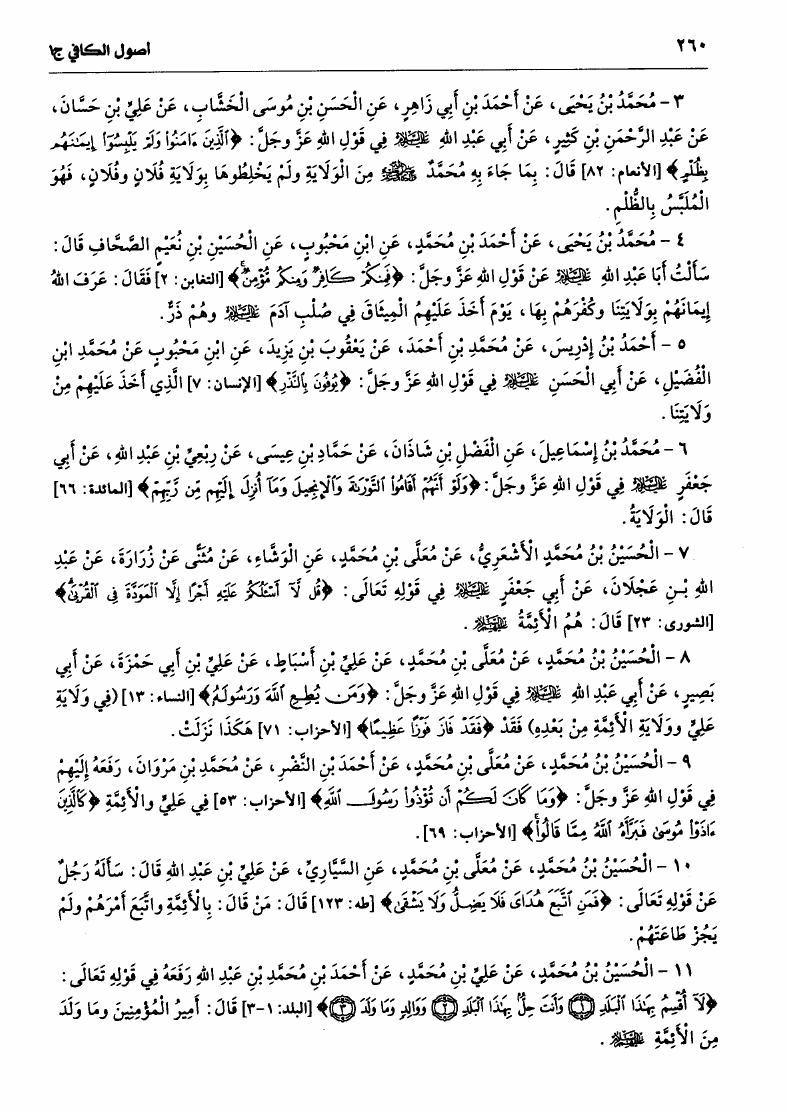 ٢٦٠ أصول الكافي ج١
٣ - مُحَمَّدُ بْنُ يَحْيَى، عَنْ أَحْمَدَ بْنِ أَبِي زَاهِرٍ، عَنِ الْحَسَنِ بْنِ مُوسَى الْخَشَّابِ، عَنْ عَلِيِّ بْنِ حَسَّانَ،
عَنْ عَبْدِ الرَّحْمَنِ بْنِ كَثِيرٍ، عَنْ أَبِي عَبْدِ اللهِ عَلَيْهِ السَّلَامُ فِي قَوْلِ اللهِ عَزَّ وجَلَّ: ﴿ٱلَّذِينَ ءَامَنُوا۟ وَلَمْ يَلْبِسُوٓا۟ إِيمَـٰنَهُم
بِظُلْمٍ﴾ [الأنعام: ٨٢] قَالَ: بِمَا جَاءَ بِهِ مُحَمَّدٌ ﷺ مِنَ الْوَلَايَةِ ولَمْ يَخْلِطُوهَا بِوَلَايَةِ فُلَانٍ وفُلَانٍ، فَهُوَ
الْمُلَبَّسُ بِالظُّلْمِ.
٤ - مُحَمَّدُ بْنُ يَحْيَى، عَنْ أَحْمَدَ بْنِ مُحَمَّدٍ، عَنِ ابْنِ مَحْبُوبٍ، عَنِ الْحُسَيْنِ بْنِ نُعَيْمٍ الصَّحَّافِ قَالَ:
سَأَلْتُ أَبَا عَبْدِ اللهِ عَلَيْهِ السَّلَامُ عَنْ قَوْلِ اللهِ عَزَّ وجَلَّ: ﴿فَمِنكُمْ كَافِرٌ وَمِنكُم مُّؤْمِنٌ﴾ [التغابن: ٢] فَقَالَ: عَرَفَ اللهُ
إِيمَانَهُمْ بِوَلَايَتِنَا وكُفْرَهُمْ بِهَا، يَوْمَ أَخَذَ عَلَيْهِمُ الْمِيثَاقَ فِي صُلْبِ آدَمَ عَلَيْهِ السَّلَامُ وهُمْ ذَرٌّ.
٥ - أَحْمَدُ بْنُ إِدْرِيسَ، عَنْ مُحَمَّدِ بْنِ أَحْمَدَ، عَنْ يَعْقُوبَ بْنِ يَزِيدَ، عَنِ ابْنِ مَحْبُوبٍ عَنْ مُحَمَّدِ ابْنِ
الْفُضَيْلِ، عَنْ أَبِي الْحَسَنِ عَلَيْهِ السَّلَامُ فِي قَوْلِ اللهِ عَزَّ وجَلَّ: ﴿يُوفُونَ بِٱلنَّذْرِ﴾ [الإنسان: ٧] الَّذِي أَخَذَ عَلَيْهِمْ مِنْ
وَلَايَتِنَا.
٦ - مُحَمَّدُ بْنُ إِسْمَاعِيلَ، عَنِ الْفَضْلِ بْنِ شَاذَانَ، عَنْ حَمَّادِ بْنِ عِيسَى، عَنْ رِبْعِيِّ بْنِ عَبْدِ اللهِ، عَنْ أَبِي
جَعْفَرٍ عَلَيْهِ السَّلَامُ فِي قَوْلِ اللهِ عَزَّ وجَلَّ: ﴿وَلَوْ أَنَّهُمْ أَقَامُوا۟ ٱلتَّوْرَىٰةَ وَٱلْإِنجِيلَ وَمَآ أُنزِلَ إِلَيْهِم مِّن رَّبِّهِمْ﴾ [المائدة: ٦٦]
قَالَ: الْوَلَايَةُ.
٧ - الْحُسَيْنُ بْنُ مُحَمَّدٍ الْأَشْعَرِيُّ، عَنْ مُعَلَّى بْنِ مُحَمَّدٍ، عَنِ الْوَشَّاءِ، عَنْ مُثَنًّى عَنْ زُرَارَةَ، عَنْ عَبْدِ
اللهِ بْنِ عَجْلَانَ، عَنْ أَبِي جَعْفَرٍ عَلَيْهِ السَّلَامُ فِي قَوْلِهِ تَعَالَى: ﴿قُل لَّآ أَسْـَٔلُكُمْ عَلَيْهِ أَجْرًا إِلَّا ٱلْمَوَدَّةَ فِى ٱلْقُرْبَىٰ﴾
[الشورى: ٢٣] قَالَ: هُمُ الْأَئِمَّةُ عَلَيْهِمُ السَّلَامُ.
٨ - الْحُسَيْنُ بْنُ مُحَمَّدٍ، عَنْ مُعَلَّى بْنِ مُحَمَّدٍ، عَنْ عَلِيِّ بْنِ أَسْبَاطٍ، عَنْ عَلِيِّ بْنِ أَبِي حَمْزَةَ، عَنْ أَبِي
بَصِيرٍ، عَنْ أَبِي عَبْدِ اللهِ عَلَيْهِ السَّلَامُ فِي قَوْلِ اللهِ عَزَّ وجَلَّ: ﴿وَمَن يُطِعِ ٱللَّهَ وَرَسُولَهُۥ﴾ [النساء: ١٣] (فِي وَلَايَةِ
عَلِيٍّ ووَلَايَةِ الْأَئِمَّةِ مِنْ بَعْدِهِ) فَقَدْ ﴿فَقَدْ فَازَ فَوْزًا عَظِيمًا﴾ [الأحزاب: ٧١] هَكَذَا نَزَلَتْ.
٩ - الْحُسَيْنُ بْنُ مُحَمَّدٍ، عَنْ مُعَلَّى بْنِ مُحَمَّدٍ، عَنْ أَحْمَدَ بْنِ النَّضْرِ، عَنْ مُحَمَّدِ بْنِ مَرْوَانَ، رَفَعَهُ إِلَيْهِمْ
فِي قَوْلِ اللهِ عَزَّ وجَلَّ: ﴿وَمَا كَانَ لَكُمْ أَن تُؤْذُوا۟ رَسُولَ ٱللَّهِ﴾ [الأحزاب: ٥٣] فِي عَلِيٍّ والْأَئِمَّةِ ﴿كَٱلَّذِينَ
ءَاذَوْا۟ مُوسَىٰ فَبَرَّأَهُ ٱللَّهُ مِمَّا قَالُوا۟﴾ [الأحزاب: ٦٩].
١٠ - الْحُسَيْنُ بْنُ مُحَمَّدٍ، عَنْ مُعَلَّى بْنِ مُحَمَّدٍ، عَنِ السَّيَّارِيِّ، عَنْ عَلِيِّ بْنِ عَبْدِ اللهِ قَالَ: سَأَلَهُ رَجُلٌ
عَنْ قَوْلِهِ تَعَالَى: ﴿فَمَنِ ٱتَّبَعَ هُدَاىَ فَلَا يَضِلُّ وَلَا يَشْقَىٰ﴾ [طه: ١٢٣] قَالَ: مَنْ قَالَ: بِالْأَئِمَّةِ واتَّبَعَ أَمْرَهُمْ ولَمْ
يَجُزْ طَاعَتَهُمْ.
١١ - الْحُسَيْنُ بْنُ مُحَمَّدٍ، عَنْ عَلِيِّ بْنِ مُحَمَّدٍ، عَنْ أَحْمَدَ بْنِ مُحَمَّدِ بْنِ عَبْدِ اللهِ رَفَعَهُ فِي قَوْلِهِ تَعَالَى:
﴿لَآ أُقْسِمُ بِهَـٰذَا ٱلْبَلَدِ ﴿١﴾ وَأَنتَ حِلٌّۢ بِهَـٰذَا ٱلْبَلَدِ ﴿٢﴾ وَوَالِدٍ وَمَا وَلَدَ ﴿٣﴾﴾ [البلد: ١-٣] قَالَ: أَمِيرُ الْمُؤْمِنِينَ ومَا وَلَدَ
مِنَ الْأَئِمَّةِ عَلَيْهِمُ السَّلَامُ.